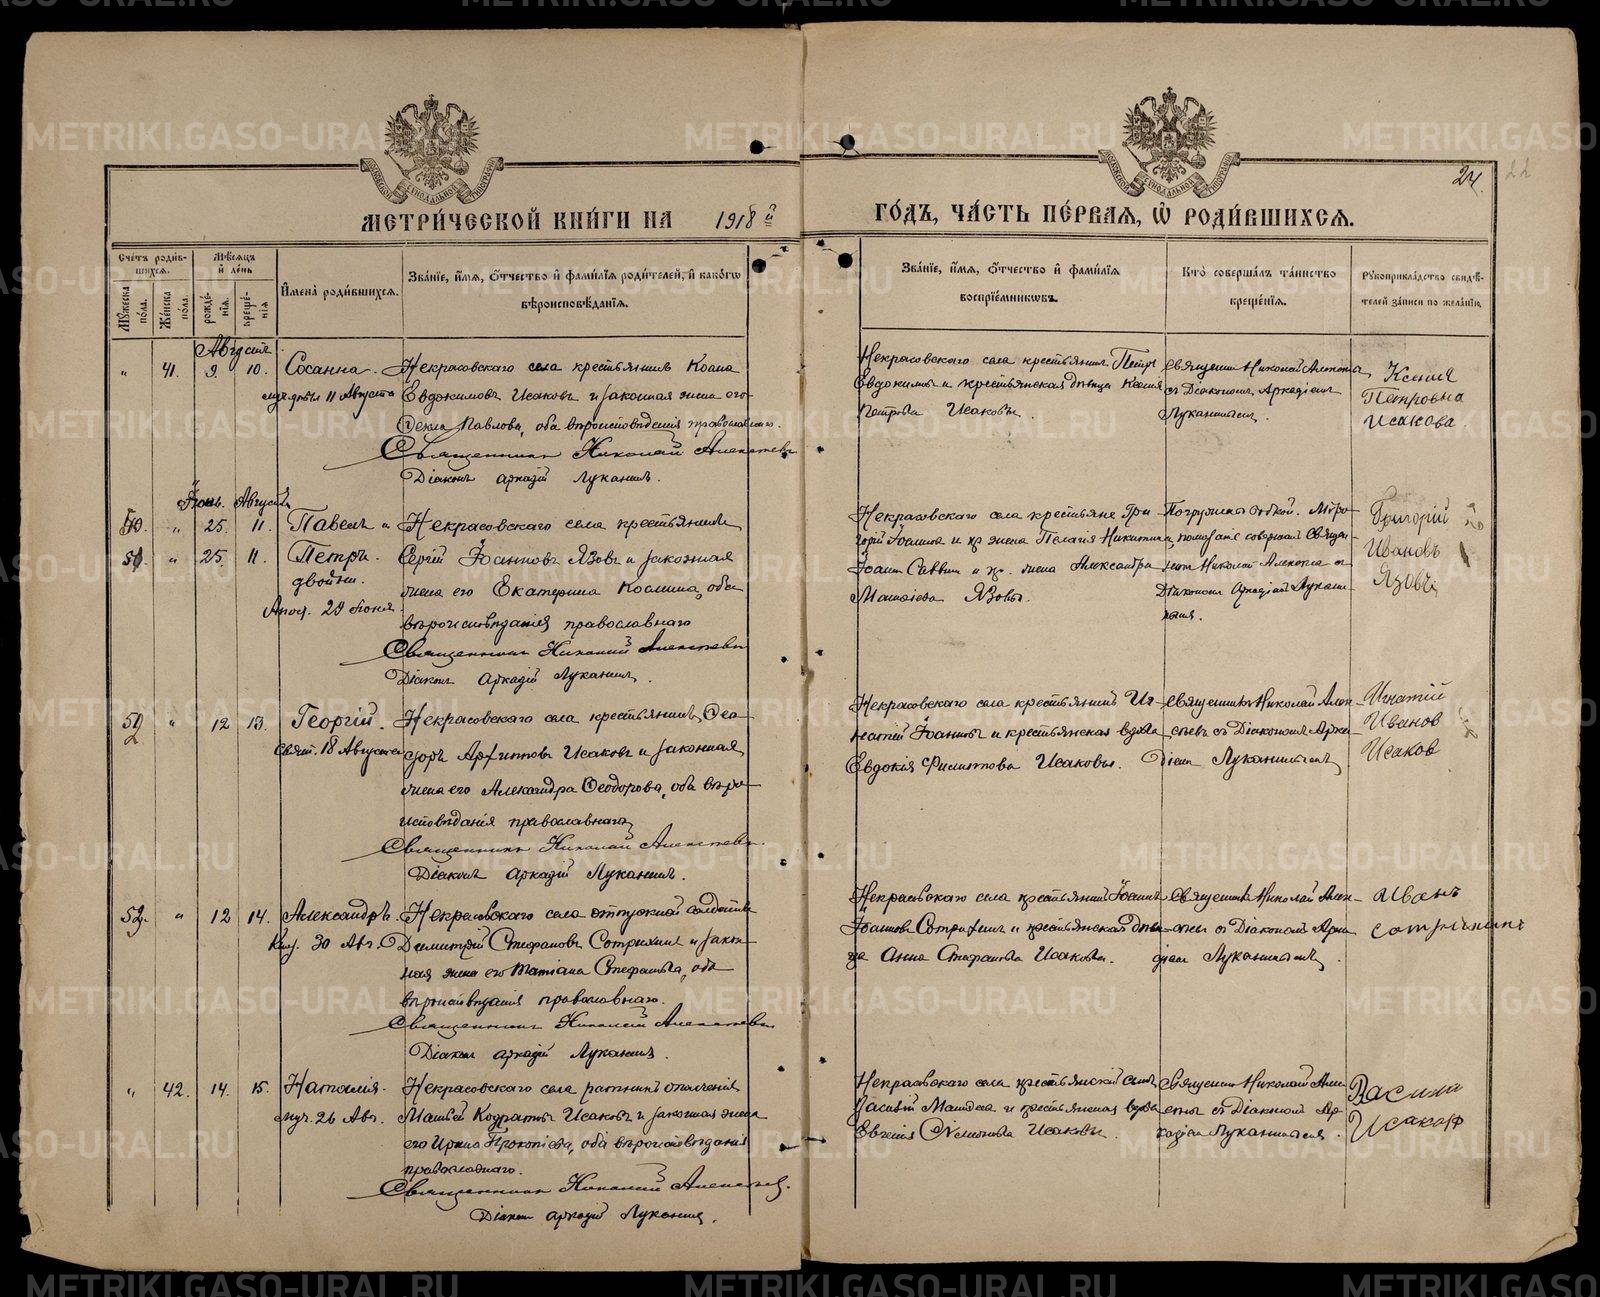 METRIKI.GASO-URAL.RU
24.
22
МЕТРИ́ЧЕСКОЙ КНИ́ГИ НА 1918 й
ГО́ДЪ, ЧА́СТЬ ПЕ́РВАѦ, Ѡ РОДИ́ВШИХСѦ.
Сче́тъ роди́вшихсѧ.
Мꙋ́жеска по́ла.
Же́нска по́ла.
Мѣ́сѧцъ и҆ де́нь
рожде́нїѧ.
креще́нїѧ
И҆мена̀ роди́вшихсѧ.
Зва́нїе, и҆́мѧ, ѻ҆́тчество и҆ фами́лїѧ роди́телей, и҆ како́гѡ вѣроисповѣ́данїѧ.
Зва́нїе, и҆́мѧ, ѻ҆́тчество и҆ фами́лїѧ воспрїе́мникѡвъ.
Кто̀ соверша́лъ та́инство креще́нїѧ.
Рꙋкоприкла́дство свидѣ́телей за́писи по жела́нїю.
Августъ
" 41. 9. 10. Сосанна.
муч. 11 Августа
Некрасовскаго села крестьянинъ Косма
Евдокимовъ Исаковъ и законная жена его
Текла Павлова, оба вѣроисповѣданія православнаго.
Священникъ Николай Алексѣевъ
Діаконъ Аркадій Луканинъ.
Некрасовскаго села крестьянинъ Петръ
Евдокимовъ и крестьянская дѣвица Ксенія
Петрова Исаковы.
Священникъ Николай
съ Діакономъ Аркадіемъ
Луканинымъ.
Ксенія
Петровна
Исакова
Іюнь. Августъ
25. 11. Павелъ и
25. 11. Петръ.
двойни.
Апос. 29 Іюня.
Некрасовскаго села крестьянинъ
Сергій Іоанновъ Язовъ и законная
жена его Екатерина Космина, оба
вѣроисповѣданія православнаго
Священникъ Николай Алексѣевъ
Діаконъ Аркадій Луканинъ.
Некрасовскаго села крестьяне Гри-
горій Іоанновъ и жена Пелагія Никитина,
Іоаннъ Саввинъ и жена Александра
Матѳіева Язовы.
Погружены бабкой. Мѵро-
помазаніе совершалъ Священ-
никъ Николай съ
Діакономъ Аркадіемъ Лукани-
нымъ.
Григорій
Ивановъ
Язовъ
52 " 12 13. Георгій.
Свят. 18 Августа
Некрасовскаго села крестьянинъ Ѳео-
доръ Архиповъ Исаковъ и законная
жена его Александра Ѳеодорова, оба вѣро-
исповѣданія православнаго
Священникъ Николай Алексѣевъ.
Діаконъ Аркадій Луканинъ.
Некрасовскаго села крестьянинъ Иг-
натій Іоанновъ и крестьянская вдова
Евдокія Филиппова Исаковы.
Священникъ Николай Алек-
сѣевъ съ Діакономъ Арка-
діемъ Луканинымъ
Игнатій
Иванов
Исаков
53. " 12 14. Александръ.
Княз. 30 Авг.
Некрасовскаго села отпускной солдатъ
Димитрій Стефановъ Сотрихинъ и закон-
ная жена его Татіана Стефанова, оба
вѣроисповѣданія православнаго.
Священникъ Николай Алексѣевъ
Діаконъ Аркадій Луканинъ.
Некрасовскаго села крестьянинъ Іоаннъ
Іоанновъ Сотрихинъ и крестьянская дѣви-
ца Анна Стефанова Исакова.
Священникъ Николай Алек-
сѣевъ съ Діакономъ Арка-
діемъ Луканинымъ
Иванъ
" 42. 14. 15. Наталія.
муч. 26 Авг.
Некрасовскаго села ратникъ ополченія
Матѳей Кодратовъ Исаковъ и законная жена
его Ирина Прокопіева, оба вѣроисповѣданія
православнаго.
Священникъ Николай Алексѣевъ.
Діаконъ Аркадій Луканинъ.
Некрасовскаго села крестьянскій сынъ
Василій Матѳеевъ и крестьянская вдова
Евгенія Исаковы.
Священникъ Николай Алек-
сѣевъ съ Діакономъ Ар-
кадіемъ Луканинымъ.
Василий
Исаков